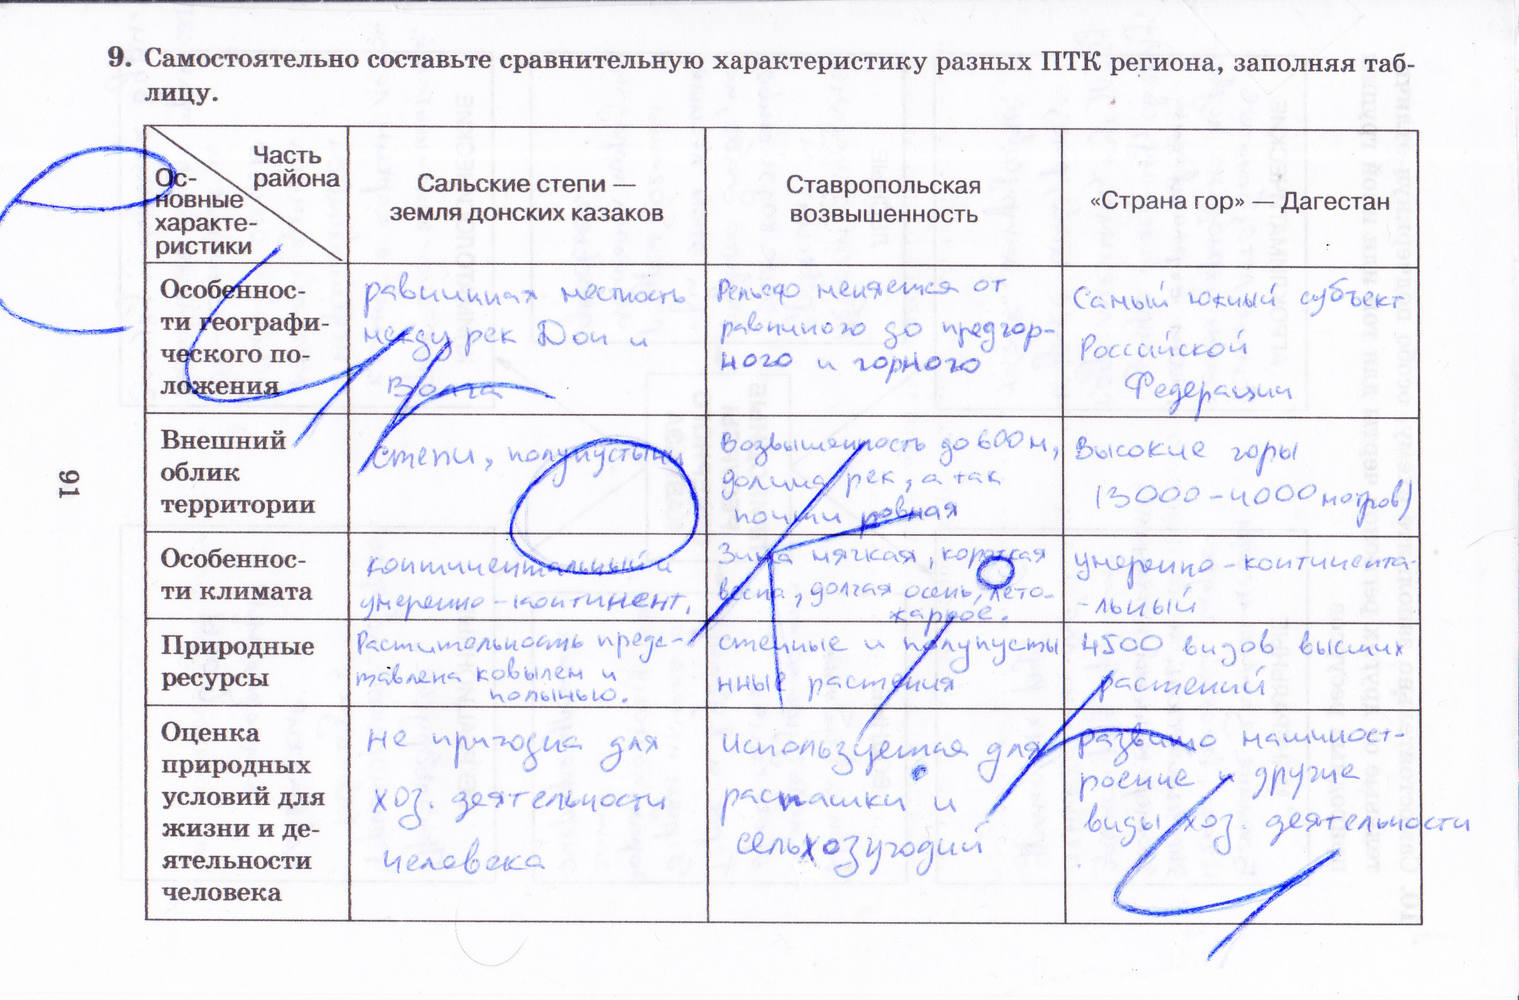 9. Самостоятельно составьте сравнительную характеристику разных ПТК региона, заполняя таб-
лицу.
Часть
района
Ос-
новные
характе-
ристики
Сальские степи —
земля донских казаков
Ставропольская
возвышенность
«Страна гор» — Дагестан
Особеннос-
ти географи-
ческого по-
ложения
равнинная местность
между рек Дон и
Волга
Рельеф меняется от
равнинного до предгор-
ного и горного
Самый южный субъект
Российской
Федерации
Внешний
облик
территории
степи, полупустыни
Возвышенность до 600 м,
долина рек, а так
почти ровная
Высокие горы
(3000-4000 метров)
Особеннос-
ти климата
континентальный и
умеренно-континент.
Зима мягкая, короткая
весна, долгая осень, лето-
жаркое.
умеренно-континента-
-льный
Природные
ресурсы
Растительность предс-
тавлена ковылем и
полынью.
степные и полупусты
нные растения
4500 видов высших
растений
Оценка
природных
условий для
жизни и де-
ятельности
человека
не пригодна для
хоз. деятельности
человека
Используемая для
распашки и
сельхозугодий
развито машиност-
роение и другие
виды хоз. деятельности
91